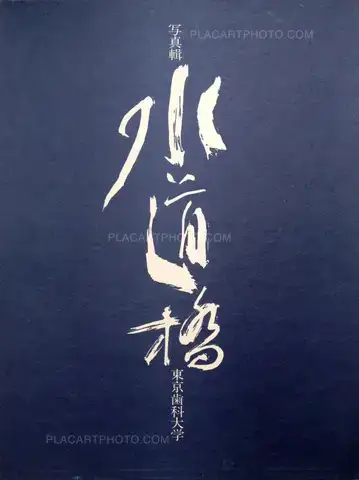 写真輯
水道橋
東京歯科大学
PLACARTPHOTO.COM
PLACARTPHOTO.COM
PLACARTPHOTO.COM